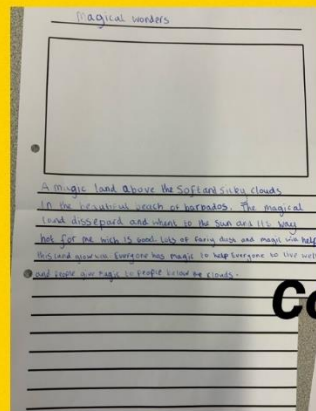 Magical wonders
A magic land above the Soft and Silky clouds
In the beautiful beach of barbados. The magical
land dissepard and whent to the sun and its way
hot for me wich is good. Lots of fairy dust and magic will help
this land grow Everyone has magic to help Everyone to live well
and people give magic to people below the clouds.
Co